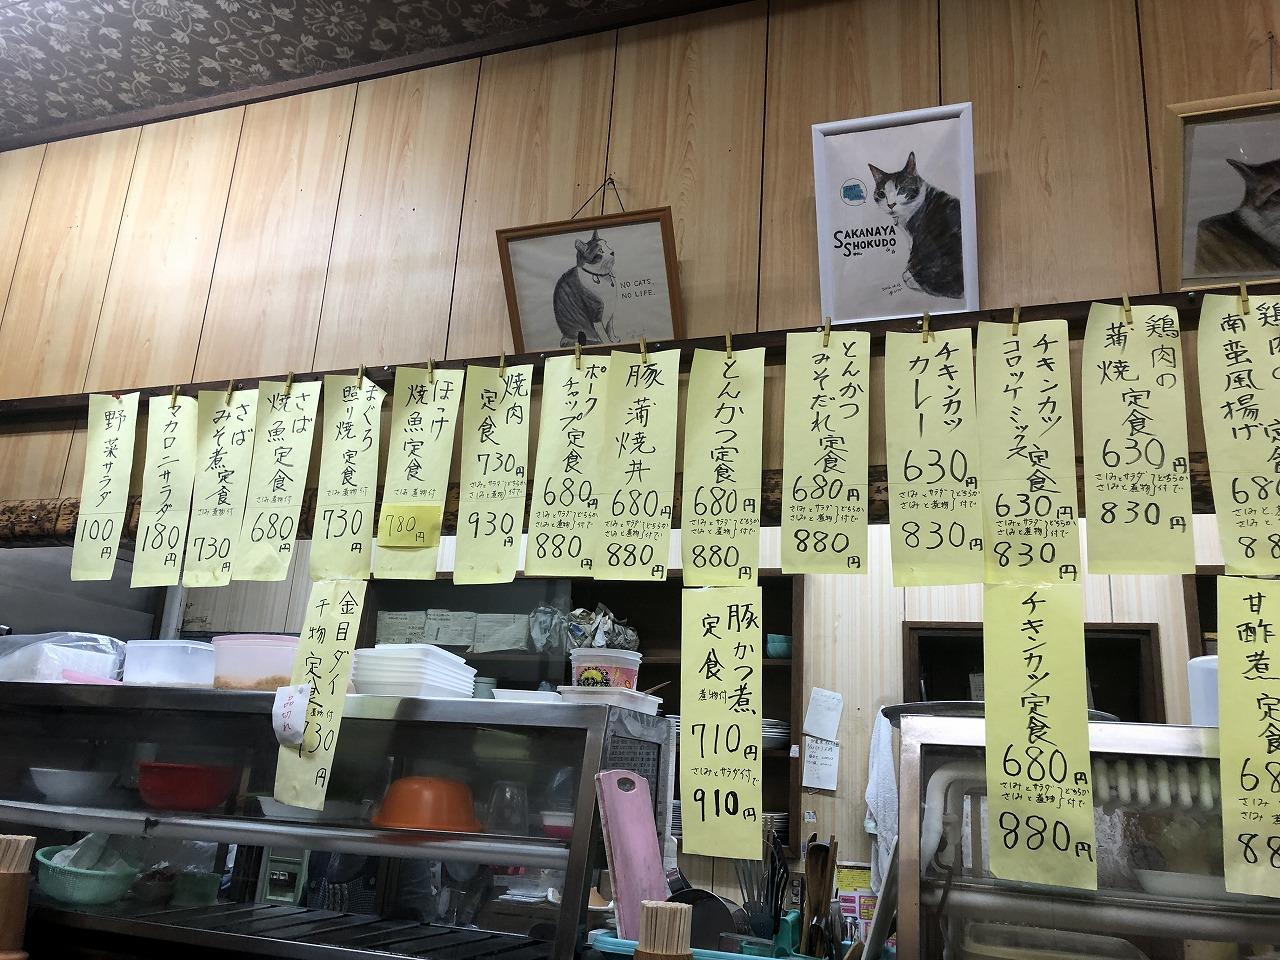 SAKANAYA
SHOKUDO
NO CATS,
NO LIFE.
野菜サラダ
100円
マカロニサラダ
180円
さば
みそ煮定食
さしみ付
730円
さば
焼魚定食
さしみ煮物付
680円
まぐろ
照り焼定食
さしみ煮物付
730円
ほっけ
焼魚定食
さしみ煮物付
780円
焼肉
定食
730円
さしみとサラダ
さしみと煮物
付で
930円
ポーク
チャップ定食
680円
さしみとサラダ
さしみと煮物
どちらか
付で
880円
豚蒲焼丼
680円
さしみとサラダ
さしみと煮物
どちらか
付で
880円
とんかつ定食
680円
さしみとサラダ
さしみと煮物
どちらか
付で
880円
とんかつ
みそだれ定食
680円
さしみとサラダ
さしみと煮物
どちらか
付で
880円
チキンカツ
カレー
630円
さしみとサラダ
さしみと煮物
どちらか
付で
830円
チキンカツ
コロッケミックス定食
630円
さしみとサラダ
さしみと煮物
どちらか
付で
830円
鶏肉の
蒲焼定食
630円
さしみとサラダ
さしみと煮物
どちらか
付で
830円
鶏肉の
南蛮風揚げ定食
金目ダイ
干物定食
煮物付
730円
品切れ
豚かつ煮
定食
煮物付
710円
さしみとサラダ付で
910円
チキンカツ定食
680円
さしみとサラダ
さしみと煮物
どちらか
付で
880円
甘酢煮
定食